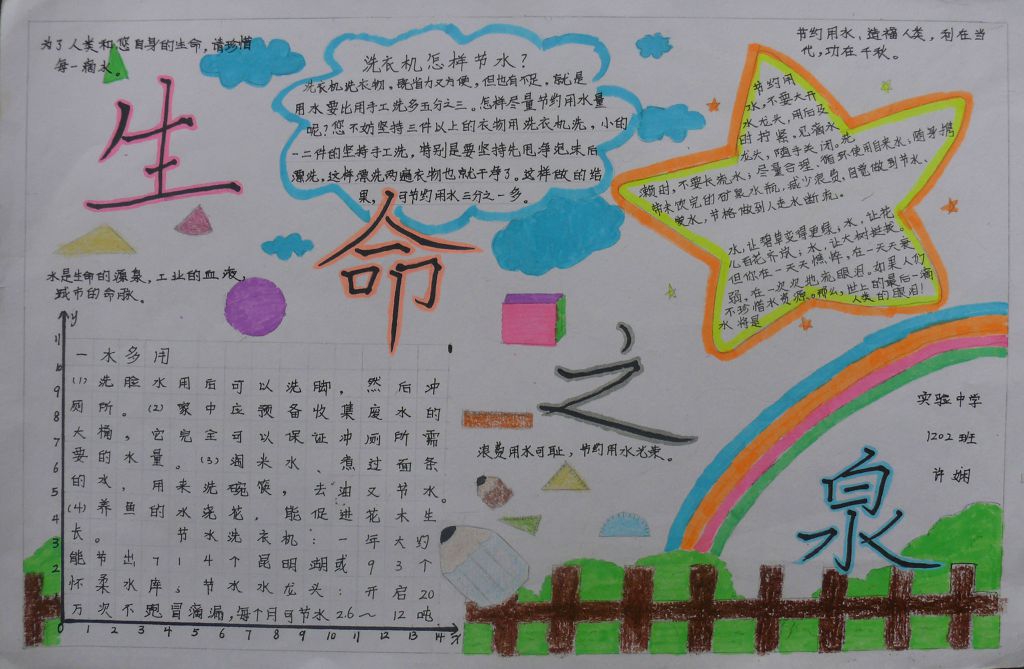 为了人类和您自身的生命,请珍惜
每一滴水。
生
命
之
泉
洗衣机怎样节水?
洗衣机洗衣物。既省力又方便,但也有不足。就是
用水要比用手工洗多五分之三。怎样尽量节约用水量
呢?您不妨坚持三件以上的衣物用洗衣机洗,小的
一二件的坚持手工洗,特别是要坚持先甩净泡沫后
漂洗,这样漂洗两遍衣物也就干净了。这样做的结
果,可节约用水三分之一多。
节约用水、造福人类,利在当
代,功在千秋。
节约用
水,不要大开
水龙头,用后及
时拧紧。见滴水
龙头,随手关闭。洗
濑时,不要长流水;尽量合理、循环使用自来水;随身携
带未饮完的矿泉水瓶,减少浪费,自觉做到节水、
爱水,节格做到人走水断流。
水,让碧草变得更绿;水,让花
儿百花齐放;水,让大树挺拔。
但你在一天天憔悴,在一天天衰
弱,在一次次地流眼泪。如果人们
不珍惜水资源。那么,世上的最后一滴
水将是人类的眼泪!
水是生命的源泉,工业的血液,
城市的命脉。
y
11
10
9
8
7
6
5
4
3
2
0 1 2 3 4 5 6 7 8 9 10 11 12 13 14 x
一水多用
(1)洗脸水用后可以洗脚,然后冲
厕所。(2)家中应预备收集废水的
大桶,它完全可以保证冲厕所需
要的水量。(3)淘米水、煮过面条
的水,用来洗碗筷,去油又节水。
(4)养鱼的水浇花,能促进花木生
长。 节水洗衣机:一年大约
能节出714个昆明湖或93个
怀柔水库;节水水龙头:开启20
万次不跑冒滴漏,每个月可节水2.6~12吨
浪费用水可耻,节约用水光荣。
实验中学
1202班
许娴